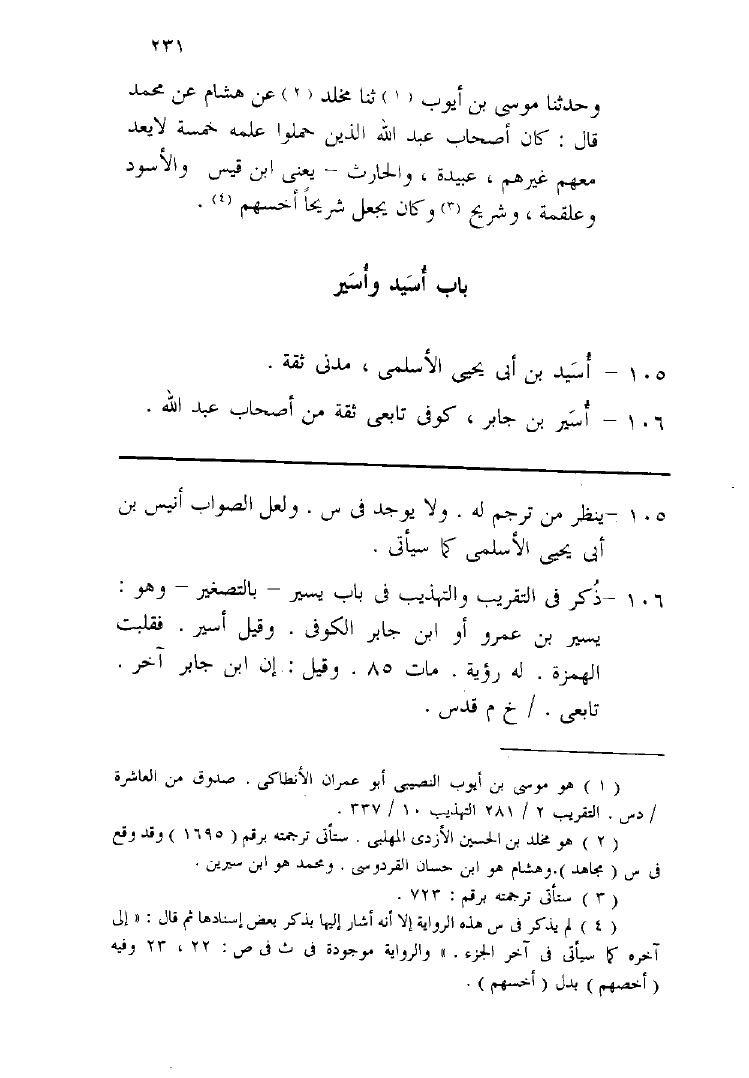 ٢٣١
وحدثنا موسى بن أيوب (١) ثنا مخلد (٢) عن هشام عن محمد
قال : كان أصحاب عبد الله الذين حملوا علمه خمسة لايعد
معهم غيرهم ، عبيدة ، والحارث – يعنى ابن قيس والأسود
وعلقمة ، وشريح (٣) وكان يجعل شريحاً أخسهم (٤) .
باب أُسَيد وأُسَير
١٠٥ – أُسَيد بن أبى يحيى الأسلمى ، مدنى ثقة .
١٠٦ – أُسَير بن جابر ، كوفى تابعى ثقة من أصحاب عبد الله .
١٠٥ –ينظر من ترجم له . ولا يوجد فى س . ولعل الصواب أنيس بن
أبى يحيى الأسلمى كما سيأتى .
١٠٦ –ذُكر فى التقريب والتهذيب فى باب يسير – بالتصغير – وهو :
يسير بن عمرو أو ابن جابر الكوفى . وقيل أسير . فقلبت
الهمزة . له رؤية . مات ٨٥ . وقيل : إن ابن جابر آخر .
تابعى . / خ م قدس .
(١) هو موسى بن أيوب النصيبى أبو عمران الأنطاكى . صدوق من العاشرة
/ دس . التقريب ٢ / ٢٨١ التهذيب ١٠ / ٣٣٧ .
(٢) هو مخلد بن الحسين الأزدى المهلبى . ستأتى ترجمته برقم (١٦٩٥) وقد وقع
فى س (مجاهد).وهشام هو ابن حسان القردوسى . ومحمد هو ابن سيرين .
(٣) ستأتى ترجمته برقم : ٧٢٣ .
(٤) لم يذكر فى س هذه الرواية إلا أنه أشار إليها بذكر بعض إسنادها ثم قال : « إلى
آخره كما سيأتى فى آخر الجزء . » والرواية موجودة فى ث فى ص : ٢٢ ، ٢٣ وفيه
(أخصهم) بدل (أخسهم) .